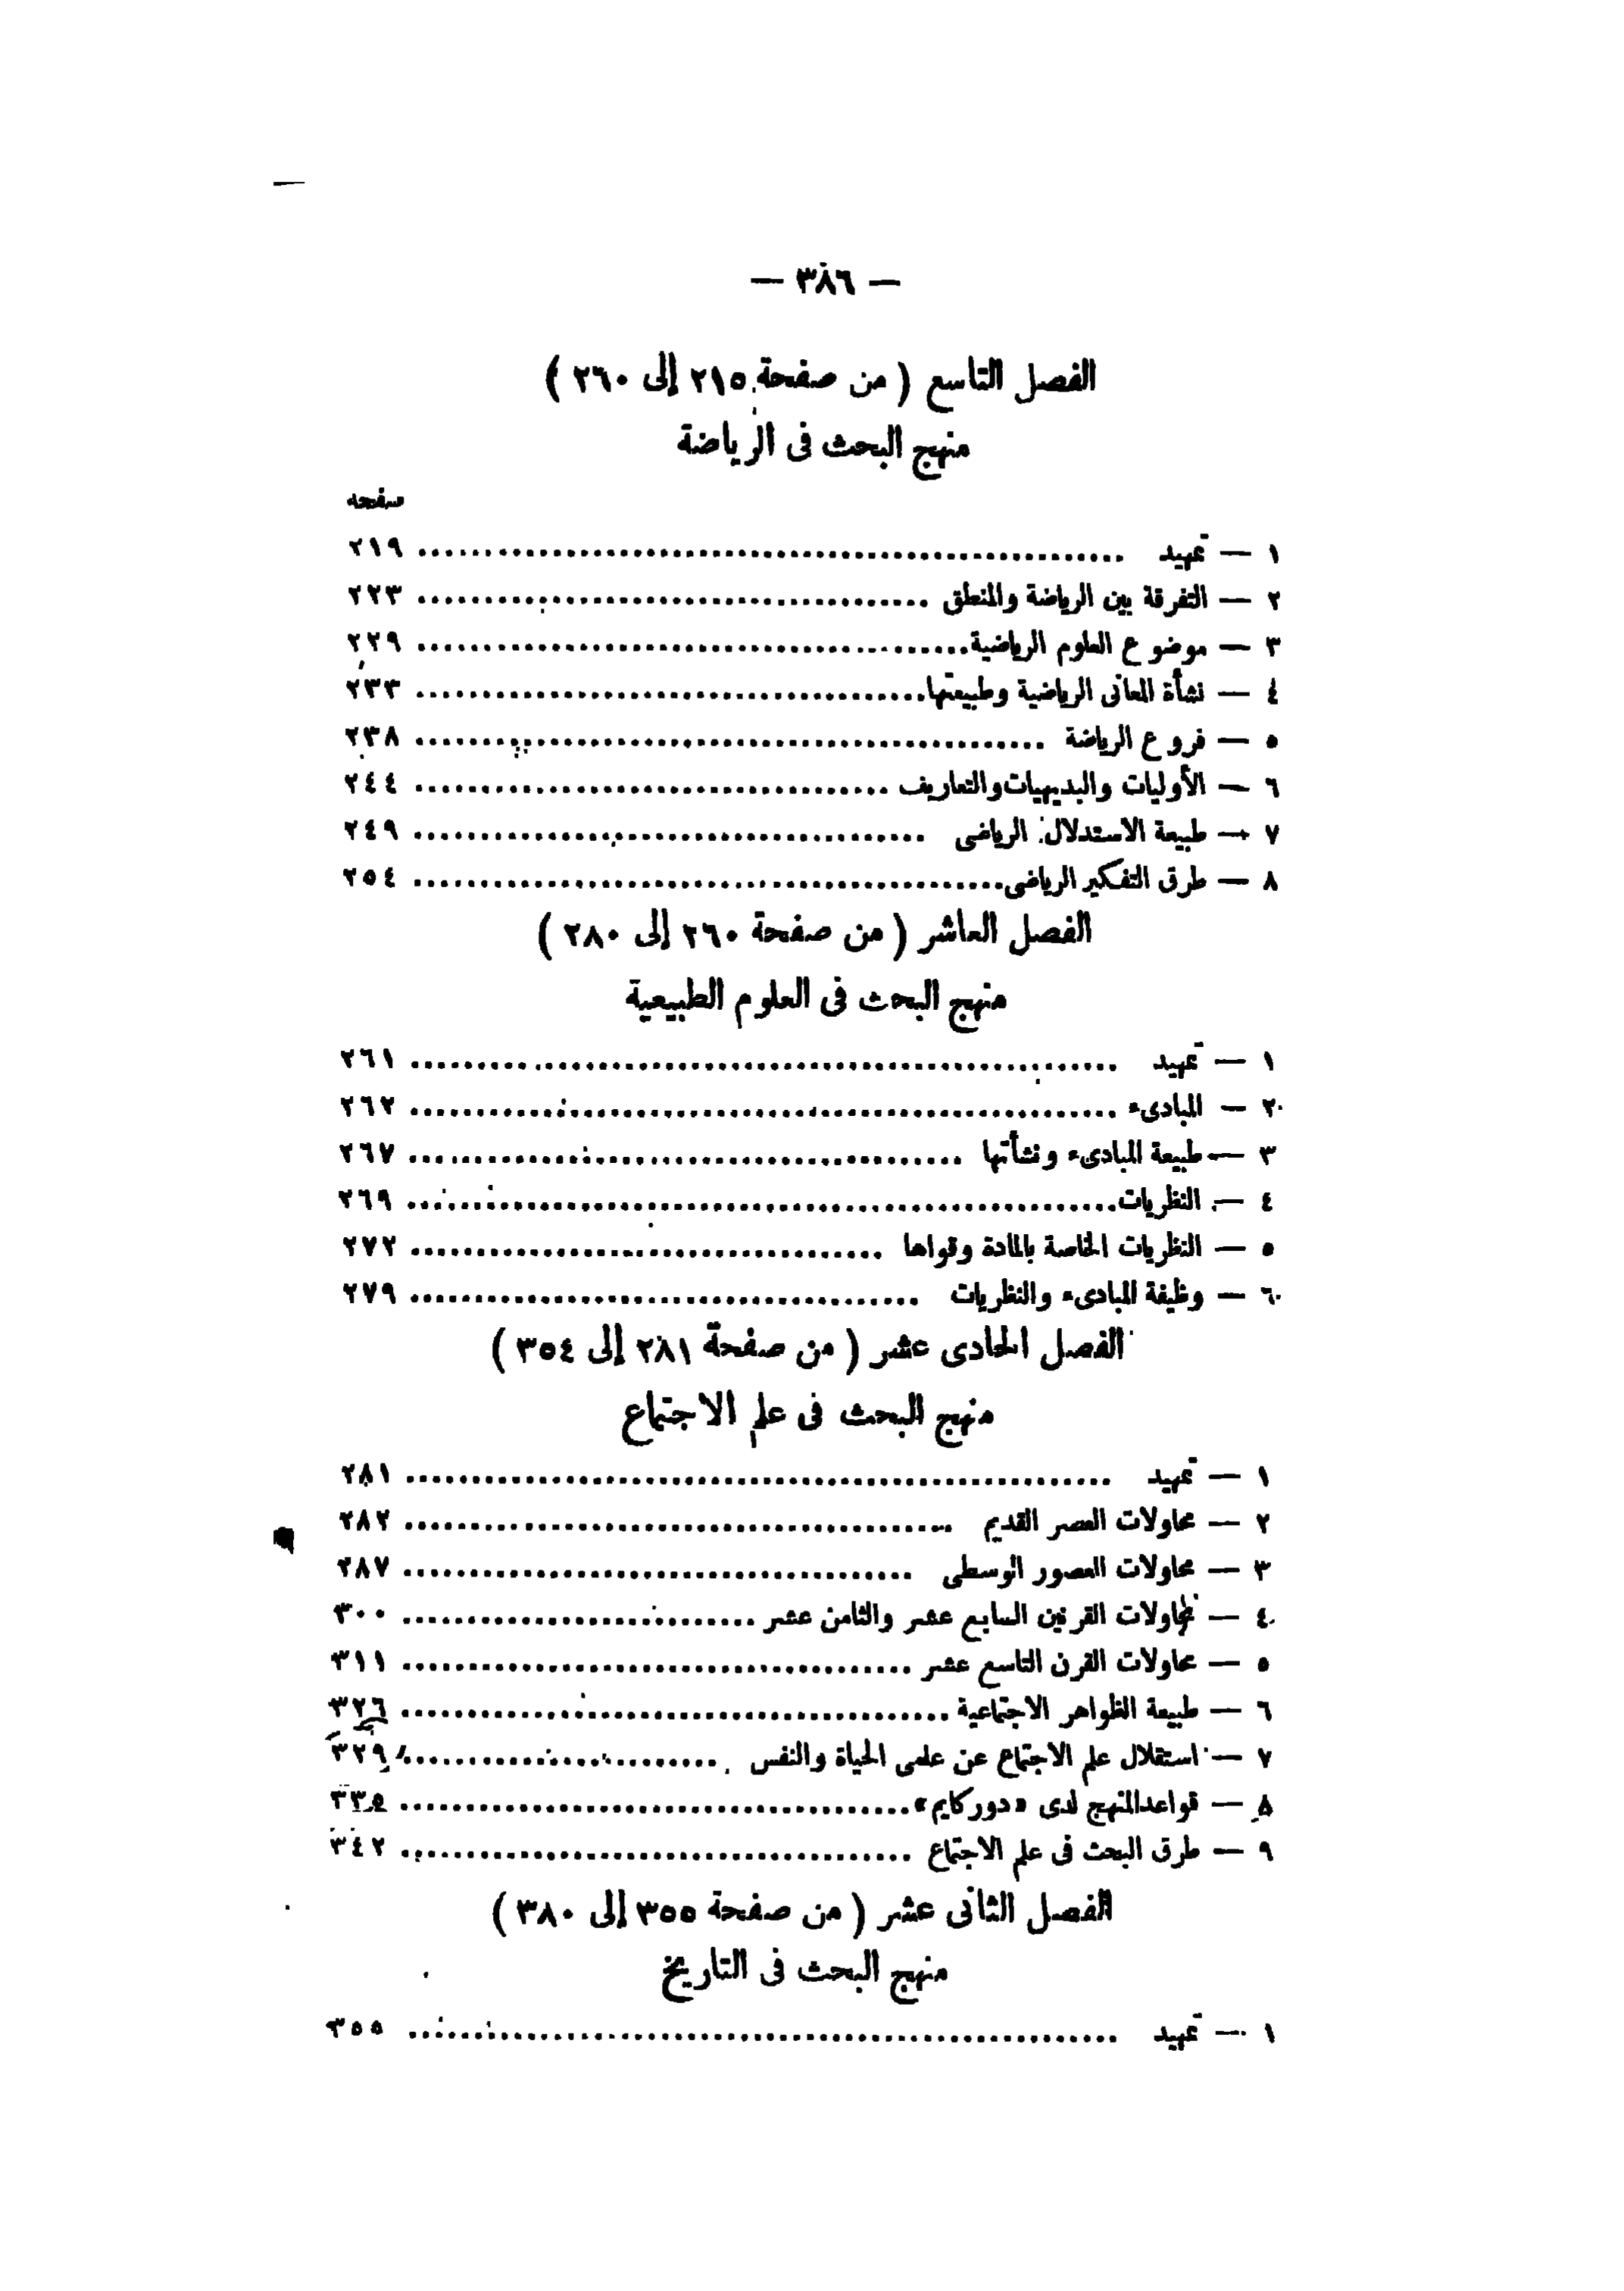 — ٣٨٦ —
الفصل التاسع ( من صفحة ٢١٥ إلى ٢٦٠ )
منهج البحث فى الرياضة
صفحة
١ — تمهيد ........ ٢١٩
٢ — التفرقة بين الرياضة والمنطق ........ ٢٢٣
٣ — موضوع العلوم الرياضية ........ ٢٢٩
٤ — نشأة المعانى الرياضية وطبيعتها ........ ٢٣٣
٥ — فروع الرياضة ........ ٢٣٨
٦ — الأوليات والبديهيات والتعاريف ........ ٢٤٤
٧ — طبيعة الاستدلال الرياضى ........ ٢٤٩
٨ — طرق التفكير الرياضى ........ ٢٥٤
الفصل العاشر ( من صفحة ٢٦٠ إلى ٢٨٠ )
منهج البحث فى العلوم الطبيعية
١ — تمهيد ........ ٢٦١
٢ — المبادىء ........ ٢٦٢
٣ — طبيعة المبادىء ونشأتها ........ ٢٦٧
٤ — النظريات ........ ٢٦٩
٥ — النظريات الخاصة بالمادة وقواها ........ ٢٧٢
٦ — وظيفة المبادىء والنظريات ........ ٢٧٩
الفصل الحادى عشر ( من صفحة ٢٨١ إلى ٣٥٤ )
منهج البحث فى علم الاجتماع
١ — تمهيد ........ ٢٨١
٢ — محاولات العصر القديم ........ ٢٨٢
٣ — محاولات العصور الوسطى ........ ٢٨٧
٤ — محاولات القرنين السابع عشر والثامن عشر ........ ٣٠٠
٥ — محاولات القرن التاسع عشر ........ ٣١١
٦ — طبيعة الظواهر الاجتماعية ........ ٣٢٦
٧ — استقلال علم الاجتماع عن علمى الحياة والنفس ........ ٣٢٩
٨ — قواعد المنهج لدى «دوركايم» ........ ٣٣٥
٩ — طرق البحث فى علم الاجتماع ........ ٣٤٢
الفصل الثانى عشر ( من صفحة ٣٥٥ إلى ٣٨٠ )
منهج البحث فى التاريخ
١ — تمهيد ........ ٣٥٥